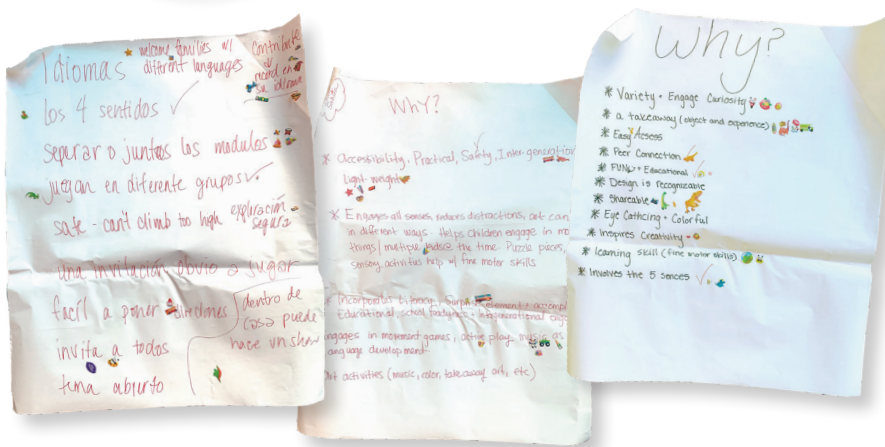 Idiomas
welcome families w/
different languages
contribute
record en
su idioma
los 4 sentidos
separar o juntos los modulos
juegan en diferente grupos
safe - can't climb too high
exploración
segura
una invitación obvio a jugar
facíl a poner
direciones
dentro de
casa puede
hace un show
invita a todos
tema abierto
WHY?
* Accessibility, Practical, Safety, Inter-generation
Light weight
* Engages all senses, reduces distractions, art can
in different ways. Helps children engage in mo
things / multiple kids @ the time. Puzzle pieces,
sensory activities help w/ fine motor skills
* Incorporates literacy, Surprise element +
Educational, school readyness +
engages in movement games, active play, music as
language development.
Art activities (music, color, take away art, etc)
Why?
* Variety + Engage Curiosity
* a takeaway (object and experience)
* Easy Access
* Peer Connection
* FUN + Educational
* Design is recognizable
* Shareable
* Eye Cathcing + Colorful
* Inspires Creativity
* learning skill (fine motor skills)
* Involves the 5 sences